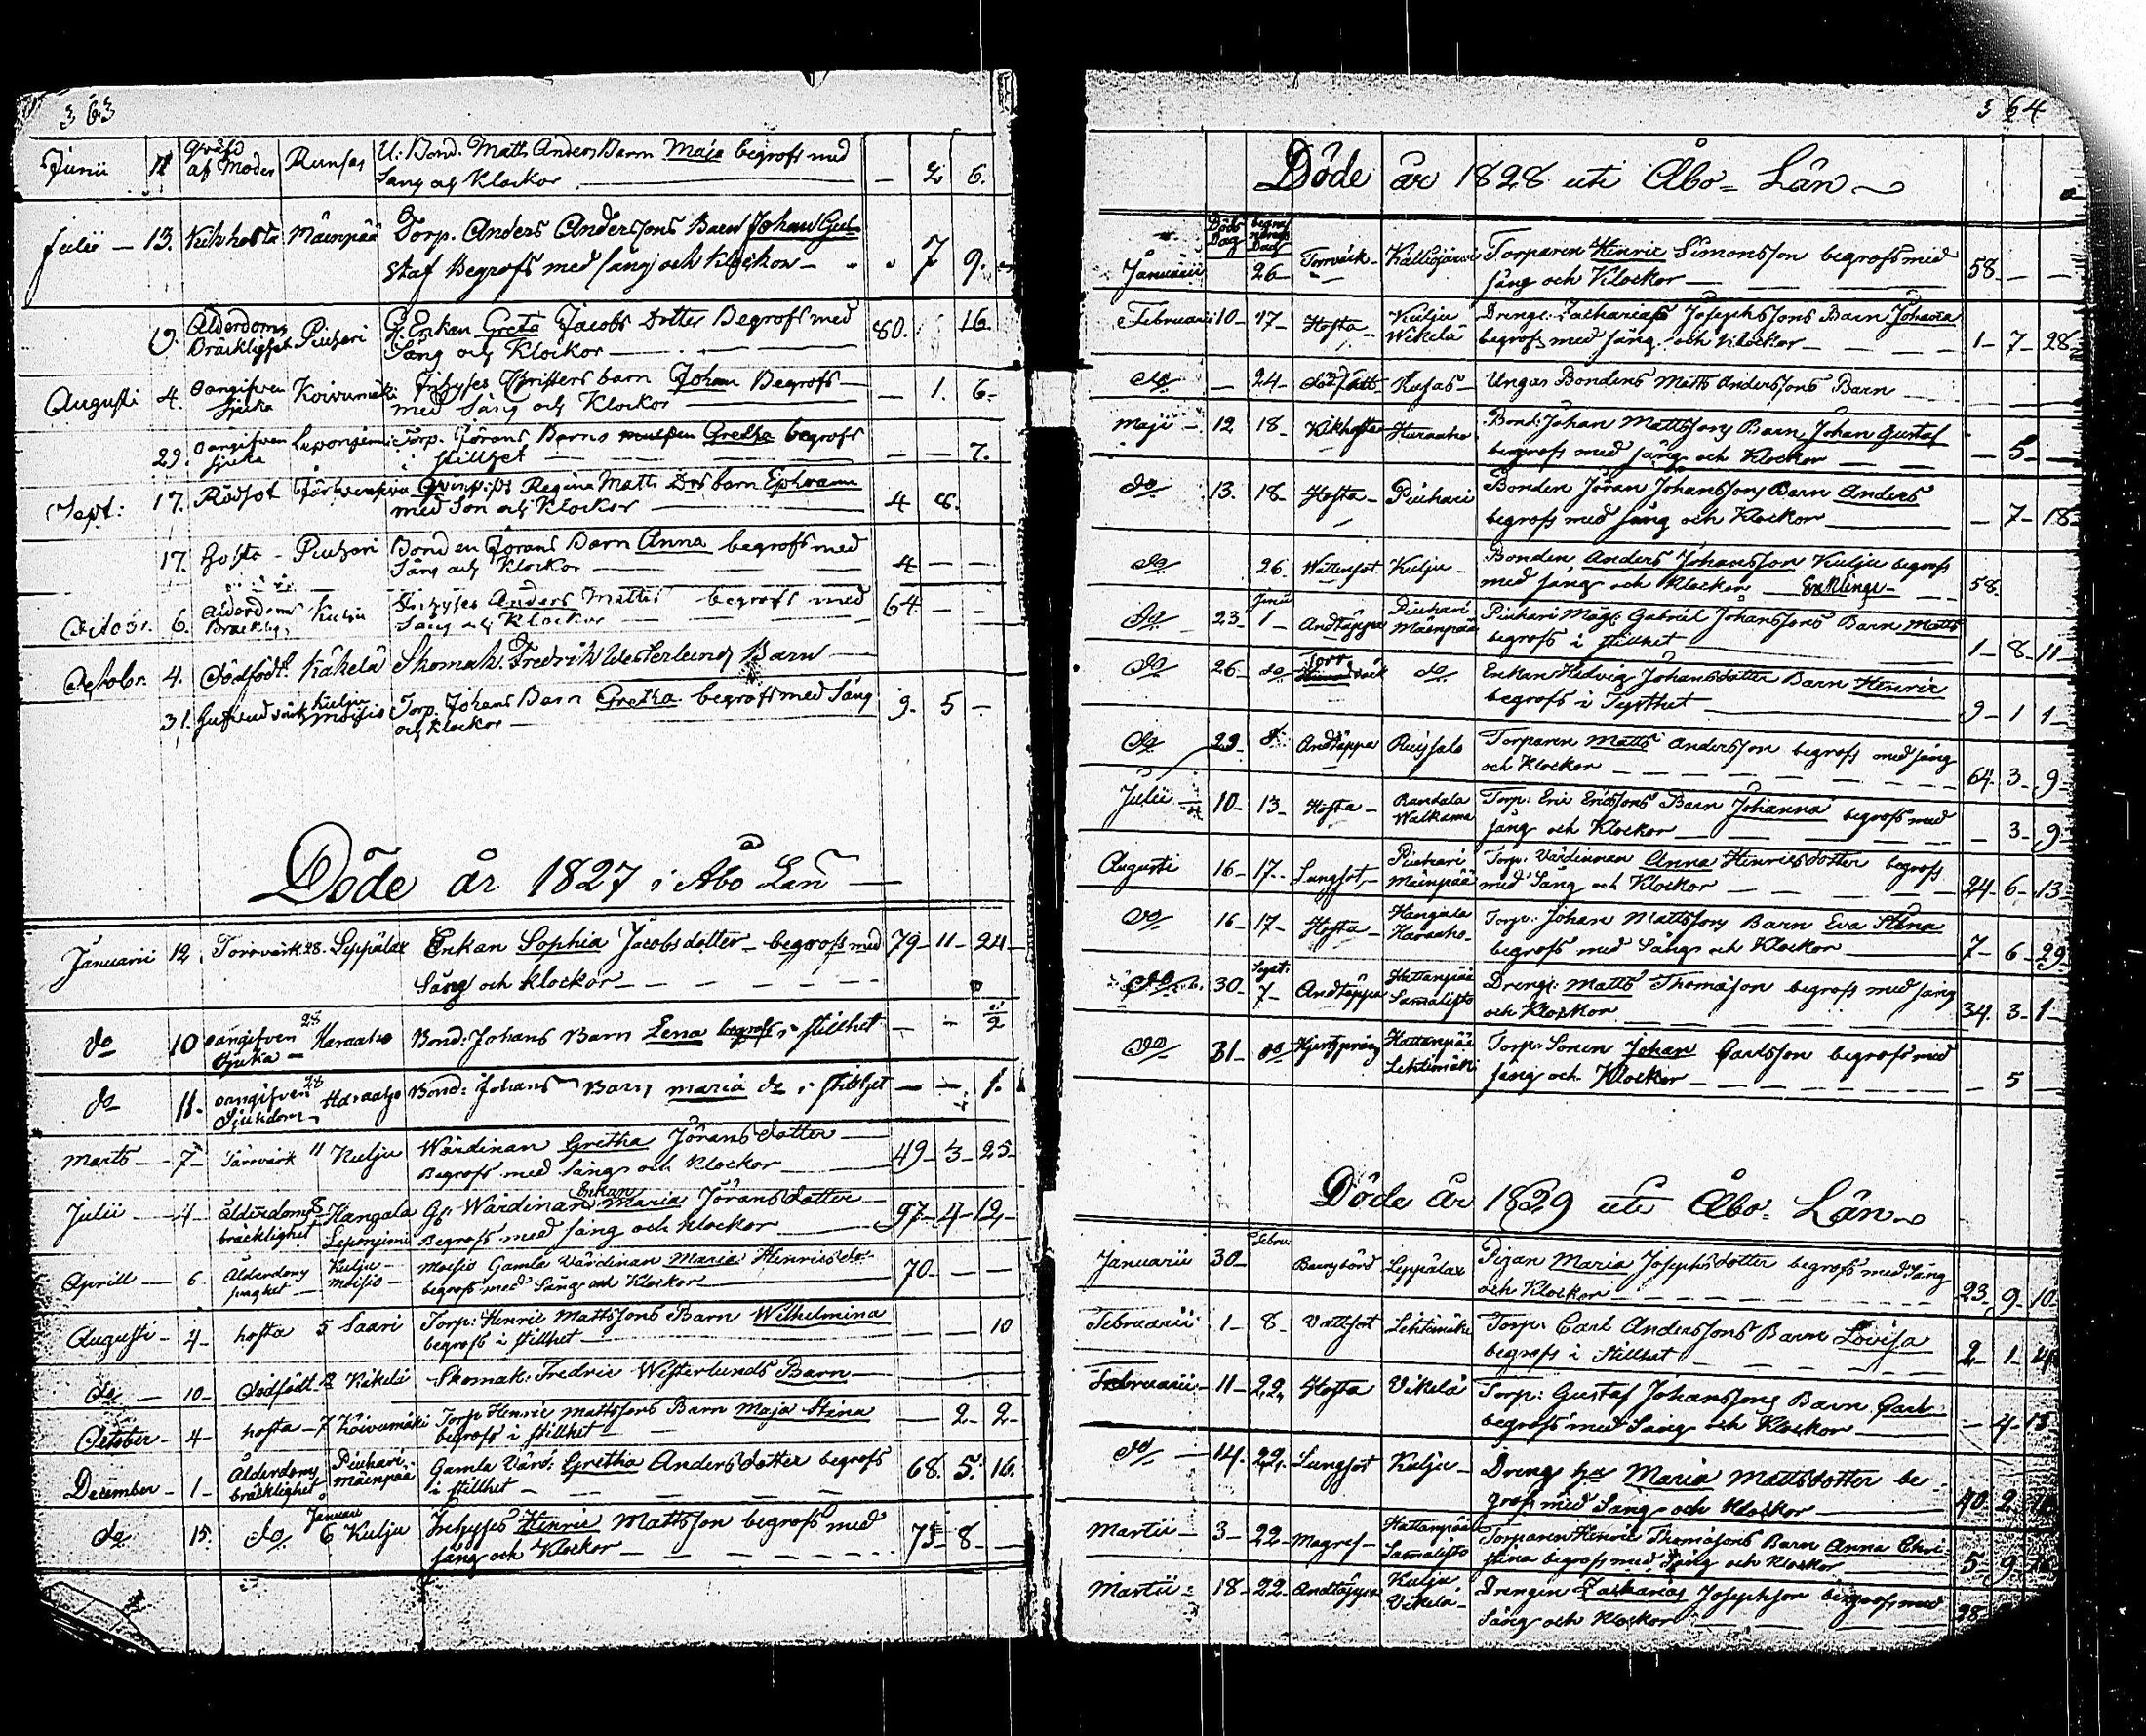 363
Junii 11 qväfd af Moder Runsas U: Bond. Matts Anders Barn Maja begrofs med — 2 6.
Sång och Klockor
Julii — 13. Kikhosta Mäenpää Torp. Anders Anderssons Barn Johan Gus-
staf Begrofs med sång och Klockor — " 7 9.
19. Ålderdoms Bräcklighet Piuhari G. Enkan Greta Jacobs Dotter Begrofs med 80. 16
Sång och Klockor
Augusti 4. Oangifven Sjuka Koivumäki Inhyses Christers barn Johan Begrofs — — 1. 6.
med Sång och Klockor
29. Oangifven Sjuka Leponjemi Torp. Görans Barns Gretha begrofs
i stillhet — — 7.
Sept: 17. Rödsot Regina Matts Drs barn Ephraim
med Son och Klockor 4 8.
17. Hosta - Piuhari Bonden Görans Barn Anna begrofs med
Sång och Klockor 4 — —
Octobr. 6. Ålderdoms Bräcklig Kulju Inhyses Anders Matts begrofs med 64. — —
Sång och Klockor
Octobr. 4. Dödfödt. Käkelä Skomak. Fredrik Westerlunds Barn —
31. Hufvud värk Kulju Moisio Torp. Johans Barn Gretha begrofs med Sång 9. 5 —
och Klockor —
Döde år 1827 i Åbo Län
Januarii 12 Torrvärk 28. Leppälax Enkan Sophia Jacobsdotter — begrofs med 79 — 11 — 24 —
Sång och klockor
do 10 oangifven Sjuka 28 Haraaho Bond: Johans Barn Lena begrofs i stillhet — — 1/2
do 11. oangifven Sjukdom 28 Haraaho Bond: Johans Barn Maria do i stillhet — — 1.
Marts — 7 — Torrvärk 11 Kulju Wärdinan Gretha Jöransdotter —
Begrofs med Sång och Klockor 49 — 3 — 25 —
Julii — 4 — ålderdoms bräcklighet 8 Hangala Leponjemi Gl. Wärdinan Enkan Maria Jöransdotter —
Begrofs med sång och Klockor 97 — 4 — 12 —
Aprill — 6. Ålderdoms Kulju — Moisio — Moisio Gamla Värdinan Maria Henricsdr.
begrofs med Sång och Klockor 70 — — —
Augusti — 4 — hosta 5 Saari Torp: Henric Mattssons Barn Wilhelmina
begrofs i stillhet — — 10
do — 10 — dödfödt Käkelä Skomak: Fredric Westerlunds Barn —
October — 4 — hosta — 7 Koivumäki Torp. Henric Mattssons Barn Maja Stina — 2 — 2 —
begrofs i stillhet —
December — 1 — Ålderdoms bräcklighet Piuhari Mäenpää Gamla Värd: Gretha Andersdotter begrofs 68. 5. 16.
i stillhet —
do 15. do Januari 6 Kulju Inhyses Henric Mattsson begrofs med
sång och Klockor — 75 — 8 —
364
Döde år 1828 uti Åbo = Län
Döds Dag begrafnings Dag
Januarii 26 — Torrvärk — Kalliojärvi Torparen Henric Simonsson begrofs med
sång och Klockor — 58 — —
Februarii 10 — 17 — Hosta — Kulju Wikelä Dreng: Zacharias Josephssons Barn Johana
begrofs med sång och Klockor — 1 — 7 — 28
do — 24 — Rusas — Ungas Bondens Matts Anderssons Barn
Maji — 12 18 — Kikhosta Haraaho. Bond: Johan Mattssons Barn Johan Gustaf
begrofs med sång och Klockor — 5 —
do 13. 18 — Hosta — Piuhari Bonden Jöran Johanssons Barn Anders
begrofs med sång och Klockor — 7 — 18
do 26. Wattusot. Kulju — Bonden Anders Johansson Kulju begrofs
med sång och Klockor 58.
do 23. Junii 1 — Andtäppa Piuhari Mäenpää Piuhari Måg: Gabriel Johanssons Barn Matts
begrofs i stillhet 1 — 8 — 11
do 26 — do Torr värk do Enkan Hedvig Johansdotter Barn Henric
begrofs i Tysthet 9 — 1 1 —
do 29. 8 Andtäppa Ruissalo Torparen Matts Andersson begrofs med sång
och Klockor 64. 3 — 9
Julii 10 — 13 — Hosta — Randala Walkama Torp: Eric Ericssons Barn Johanna begrofs med
sång och Klockor — 3 — 9
Augusti 16 — 17 — Lungsot — Piuhari Mäenpää Torp: Värdinnan Anna Henricsdotter begrofs
med Sång och Klockor 24 — 6 — 13
do 16 — 17 — Hosta — Hangala Haraaho — Torp: Johan Mattssons Barn Eva Stina
begrofs med Sång och Klockor 7 — 6 — 29
do 30 — Sept: 7 — Andtäppa Hattanpää Samalisto Dreng: Matts Thomasson begrofs med sång
och Klockor 34. 3 — 1
do 31 — do Hattanpää Lehtimäki Torp: Sonen Johan Carlsson begrofs med
sång och Klockor — — 5 —
Döde år 1829 uti Åbo = Län
Januarii 30 — Februa Barnsbörd Leppälax Pigan Maria Josephsdotter begrofs med Sång
och Klockor — 23 — 9 — 10
Februarii 1 — 8 — Vattsot Lehtimäki Torp: Carl Anderssons Barn Lovisa
begrofs i stillhet — 2 — 1 —
Februarii — 11 — 22. Hosta Vikelä Torp: Gustaf Johanssons Barn Carl
begrofs med Sång och Klockor — 4 — 15
do — 14. 22. Lungsot Kulju — Dreng Maria Mattsdotter be-
grofs med Sång och Klockor 40. 2
Martii — 3 — 22 — Magref — Hattanpää Samalisto Torparen Henric Thomassons Barn Anna Chri-
stina begrofs med Sång och Klockor 5 9
Martii — 18 — 22 — Andtäppa Kulju Vikelä — Drengen Zacharias Josephsson begrofs med
Sång och Klockor 28